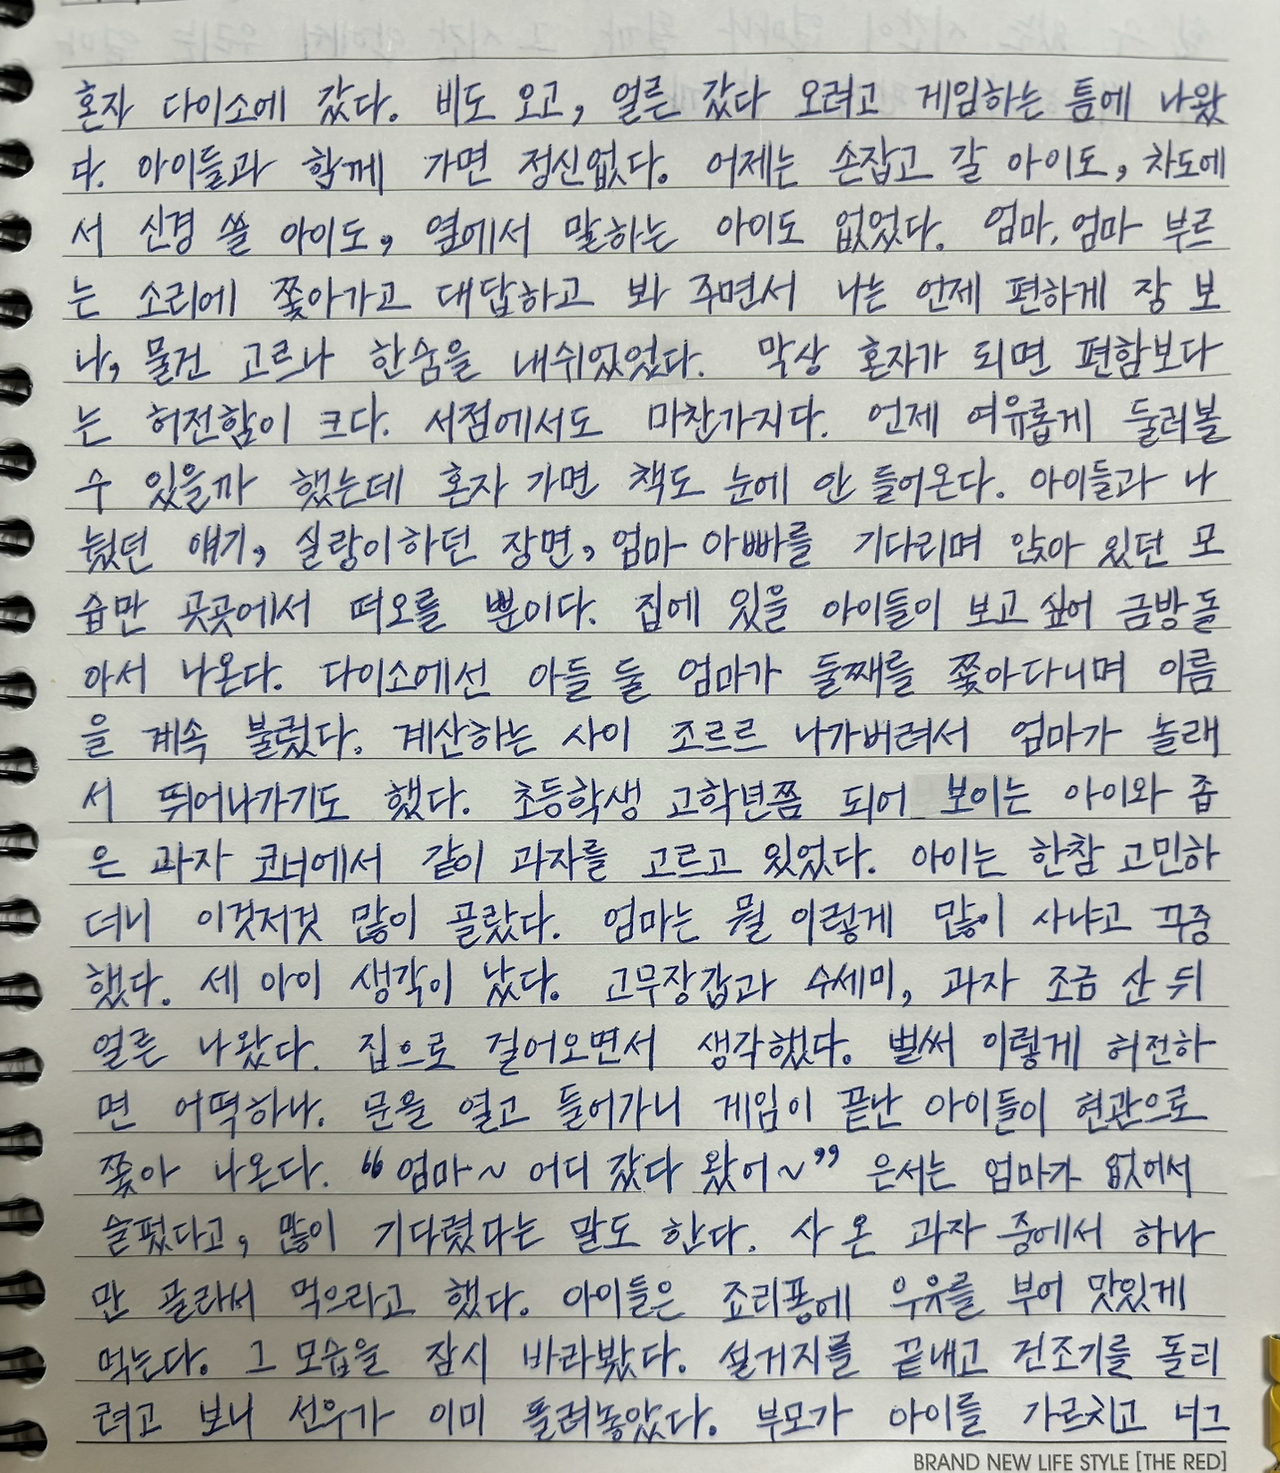 혼자 다이소에 갔다. 비도 오고, 얼른 갔다 오려고 게임하는 틈에 나왔
다. 아이들과 함께 가면 정신없다. 어제는 손잡고 갈 아이도, 차도에
서 신경 쓸 아이도, 옆에서 말하는 아이도 없었다. 엄마, 엄마 부르
는 소리에 쫓아가고 대답하고 봐 주면서 나는 언제 편하게 장 보
나, 물건 고르나 한숨을 내쉬었었다. 막상 혼자가 되면 편함보다
는 허전함이 크다. 서점에서도 마찬가지다. 언제 여유롭게 둘러볼
수 있을까 했는데 혼자 가면 책도 눈에 안 들어온다. 아이들과 나
눴던 얘기, 실랑이하던 장면, 엄마 아빠를 기다리며 앉아 있던 모
습만 곳곳에서 떠오를 뿐이다. 집에 있을 아이들이 보고 싶어 금방 돌
아서 나온다. 다이소에선 아들 둘 엄마가 둘째를 쫓아다니며 이름
을 계속 불렀다. 계산하는 사이 조르르 나가버려서 엄마가 놀래
서 뛰어나가기도 했다. 초등학생 고학년쯤 되어 보이는 아이와 좁
은 과자 코너에서 같이 과자를 고르고 있었다. 아이는 한참 고민하
더니 이것저것 많이 골랐다. 엄마는 뭘 이렇게 많이 사냐고 꾸중
했다. 세 아이 생각이 났다. 고무장갑과 수세미, 과자 조금 산 뒤
얼른 나왔다. 집으로 걸어오면서 생각했다. 벌써 이렇게 허전하
면 어떡하나. 문을 열고 들어가니 게임이 끝난 아이들이 현관으로
쫓아 나온다. “엄마~ 어디 갔다 왔어~” 은서는 엄마가 없어서
슬펐다고, 많이 기다렸다는 말도 한다. 사 온 과자 중에서 하나
만 골라서 먹으라고 했다. 아이들은 죠리퐁에 우유를 부어 맛있게
먹는다. 그 모습을 잠시 바라봤다. 설거지를 끝내고 건조기를 돌리
려고 보니 선우가 이미 돌려놓았다. 부모가 아이를 가르치고 너그
BRAND NEW LIFE STYLE [THE RED]